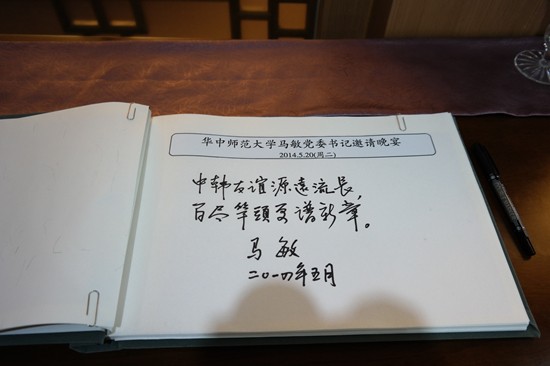 华中师范大学马敏党委书记邀请晚宴
2014.5.20(周二)
中韩友谊源遠流長,
百尽竿頭更谱新章。
马敏
二〇一四年五月